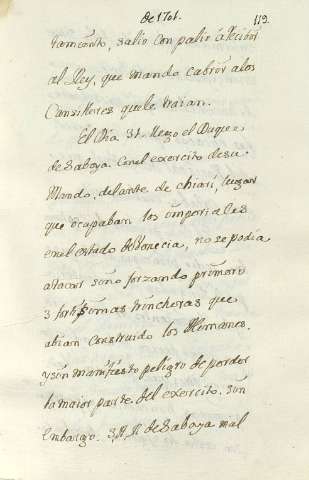 de 1701. 113
ramento, salio con palio a recibir
al Rey, que mando cubrir a los
Consilleres que le traian.
El Dia 31. llego el Duque
de Saboya. Con el exercito de su
Mando, delante de chiari, lugar
que ocupaban los imperiales
en el estado de Venecia, no se podia
atacar sino forzando primero
3 fortisimas trincheras que
abian construido los Alemanes
y sin manifiesto peligro de perder
la maior parte del exercito. sin
embargo. S. A. R. de Saboya mal